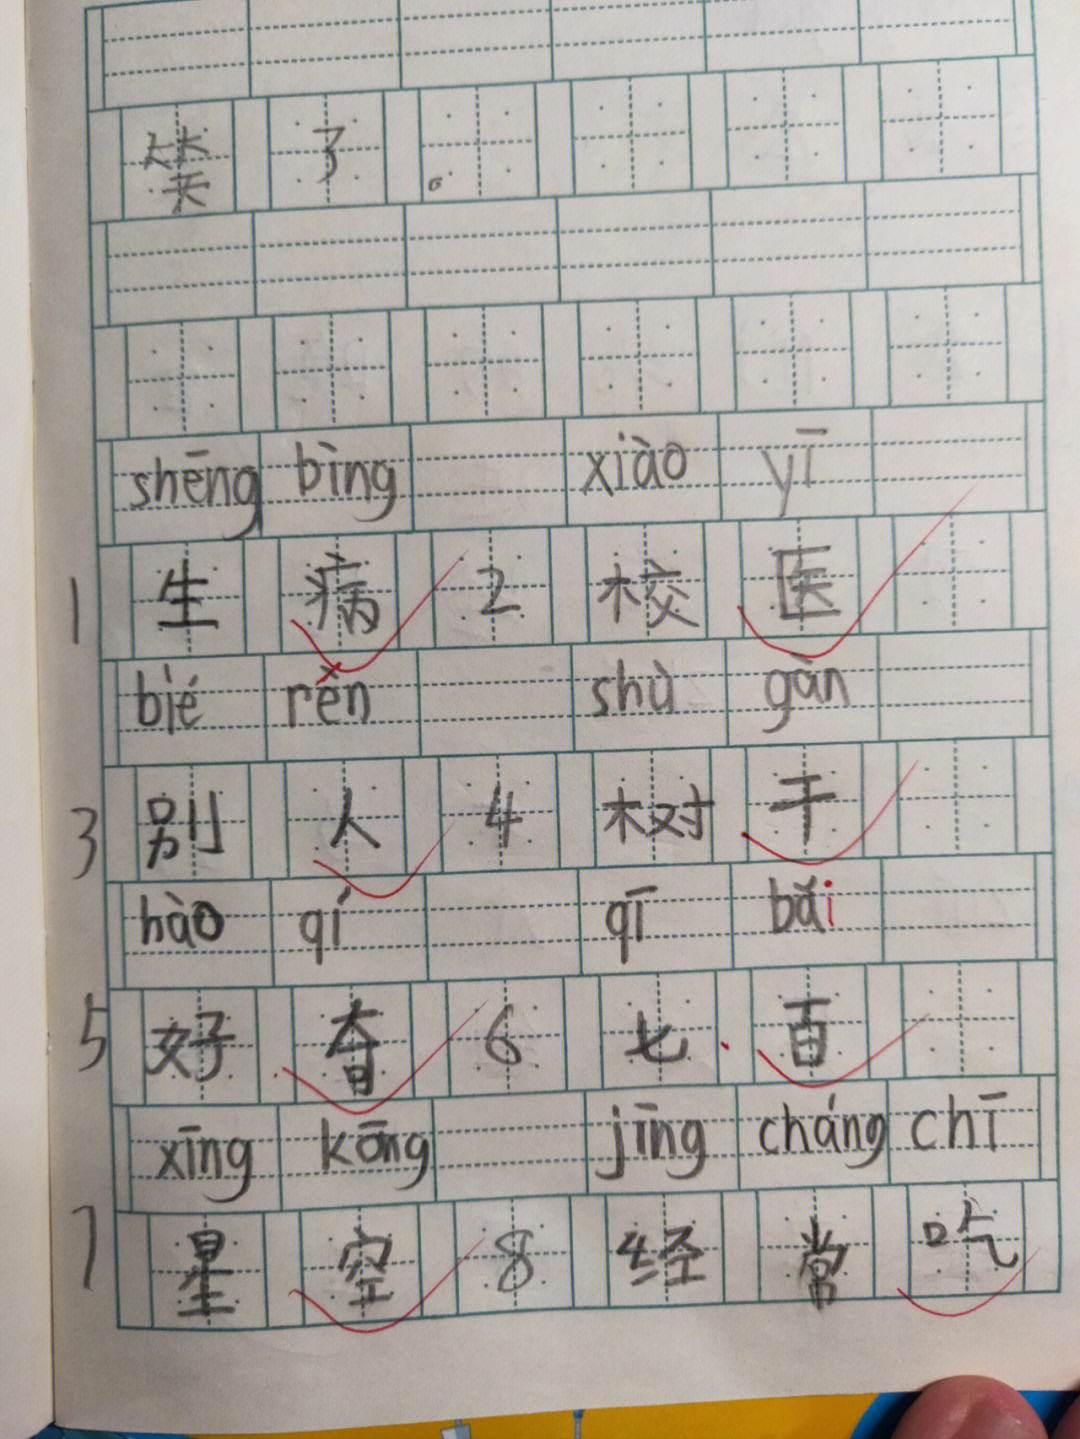 笑了。
shēng bìng xiào yī
1 生病 2 校医
bié rén shù gàn
3 别人 4 树干
hào qí qī bǎi
5 好奇 6 七百
xīng kōng jīng cháng chī
7 星空 8 经常吃